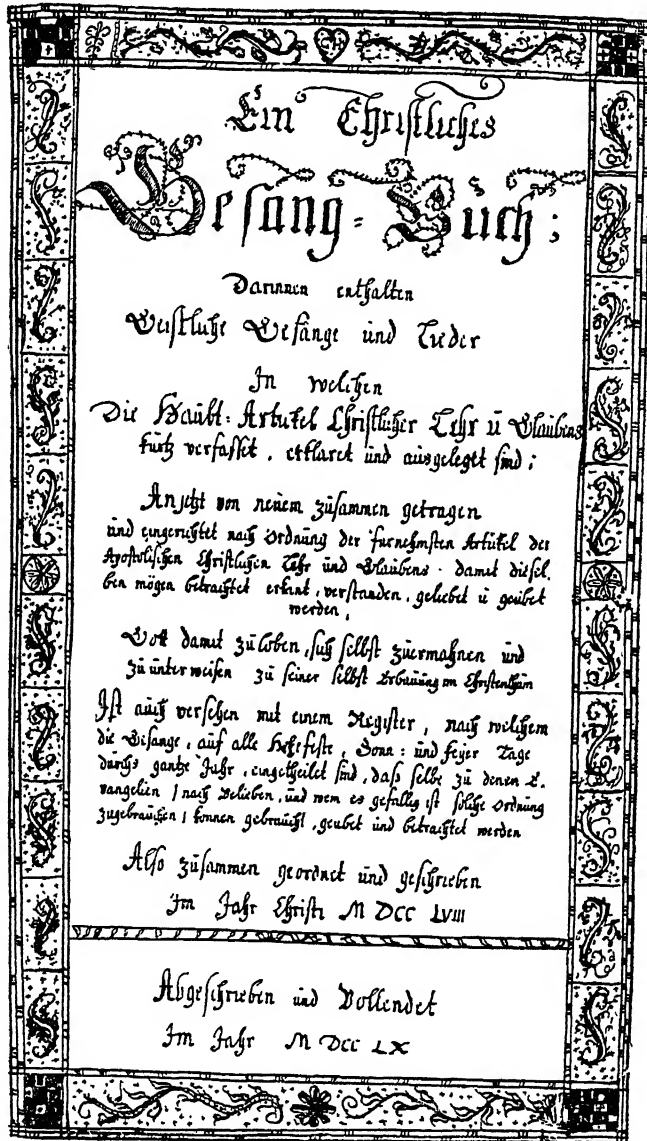 Ein Christliches
Gesang = Buch;
Darinnen enthalten
Geistliche Gesänge und Lieder
In welchen
Die Haubt = Artickel Christlicher Lehr u Glaubens
kurtz verfasset, erklaret und ausgeleget sind;
Anjetzt von neuem zusammen getragen
und eingerichtet nach Ordnung der furnehmsten Artickel der
Apostolischen Christlichen Lehr und Glaubens. damit diesel,
ben mögen betrachtet erkent, verstanden, geliebet u geübet
werden,
Gott damit zu loben, sich selbst zuermahnen und
zu unterweisen zu seiner selbst Erbauung im Christenthum
Ist auch versehen mit einem Register, nach welchem
die Gesange, auf alle Hohefeste, Sonn = und feyer Tage
durchs gantze Jahr, eingetheilet sind, dass selbe zu denen E.
vangelien / nach Belieben, und wem es gefallig ist solche Ordnung
zugebrauchen / konnen gebraucht, geubet und betrachtet werden
Also zusammen geordnet und geschrieben
im Jahr Christi M DCC LVIII
Abgeschrieben und Vollendet
Im Jahr M DCC LX